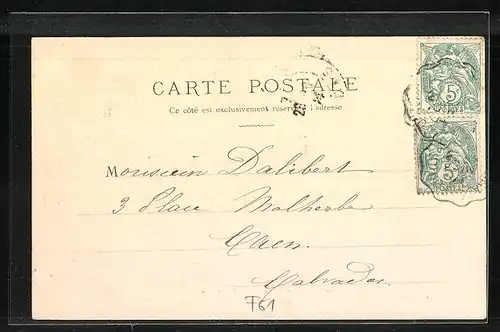 CARTE POSTALE
Ce côté est exclusivement réservé à l'adresse
Monsieur Dalibert
3 Place Malherbe
Caen.
Calvados.
F61
5
5